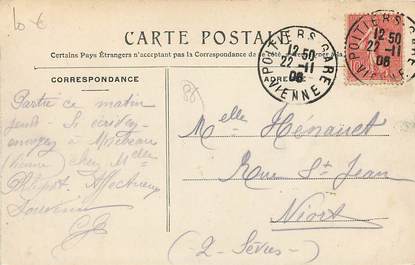 10 €
CARTE POSTALE
Certains Pays Étrangers n'acceptant pas la Correspondance de ce
CORRESPONDANCE
POITIERS GARE
12 50
22 -11
06
VIENNE
POITIERS GARE
12 50
22 -11
06
VIENNE
Partie ce matin
jeudi - Si écrivez,
envoyez à Mirebeau
(Vienne) chez Melle
Philipot. Affectueux
Souvenir
86
Melle Hénault
Rue St Jean
Niort
(2 - Sèvres)